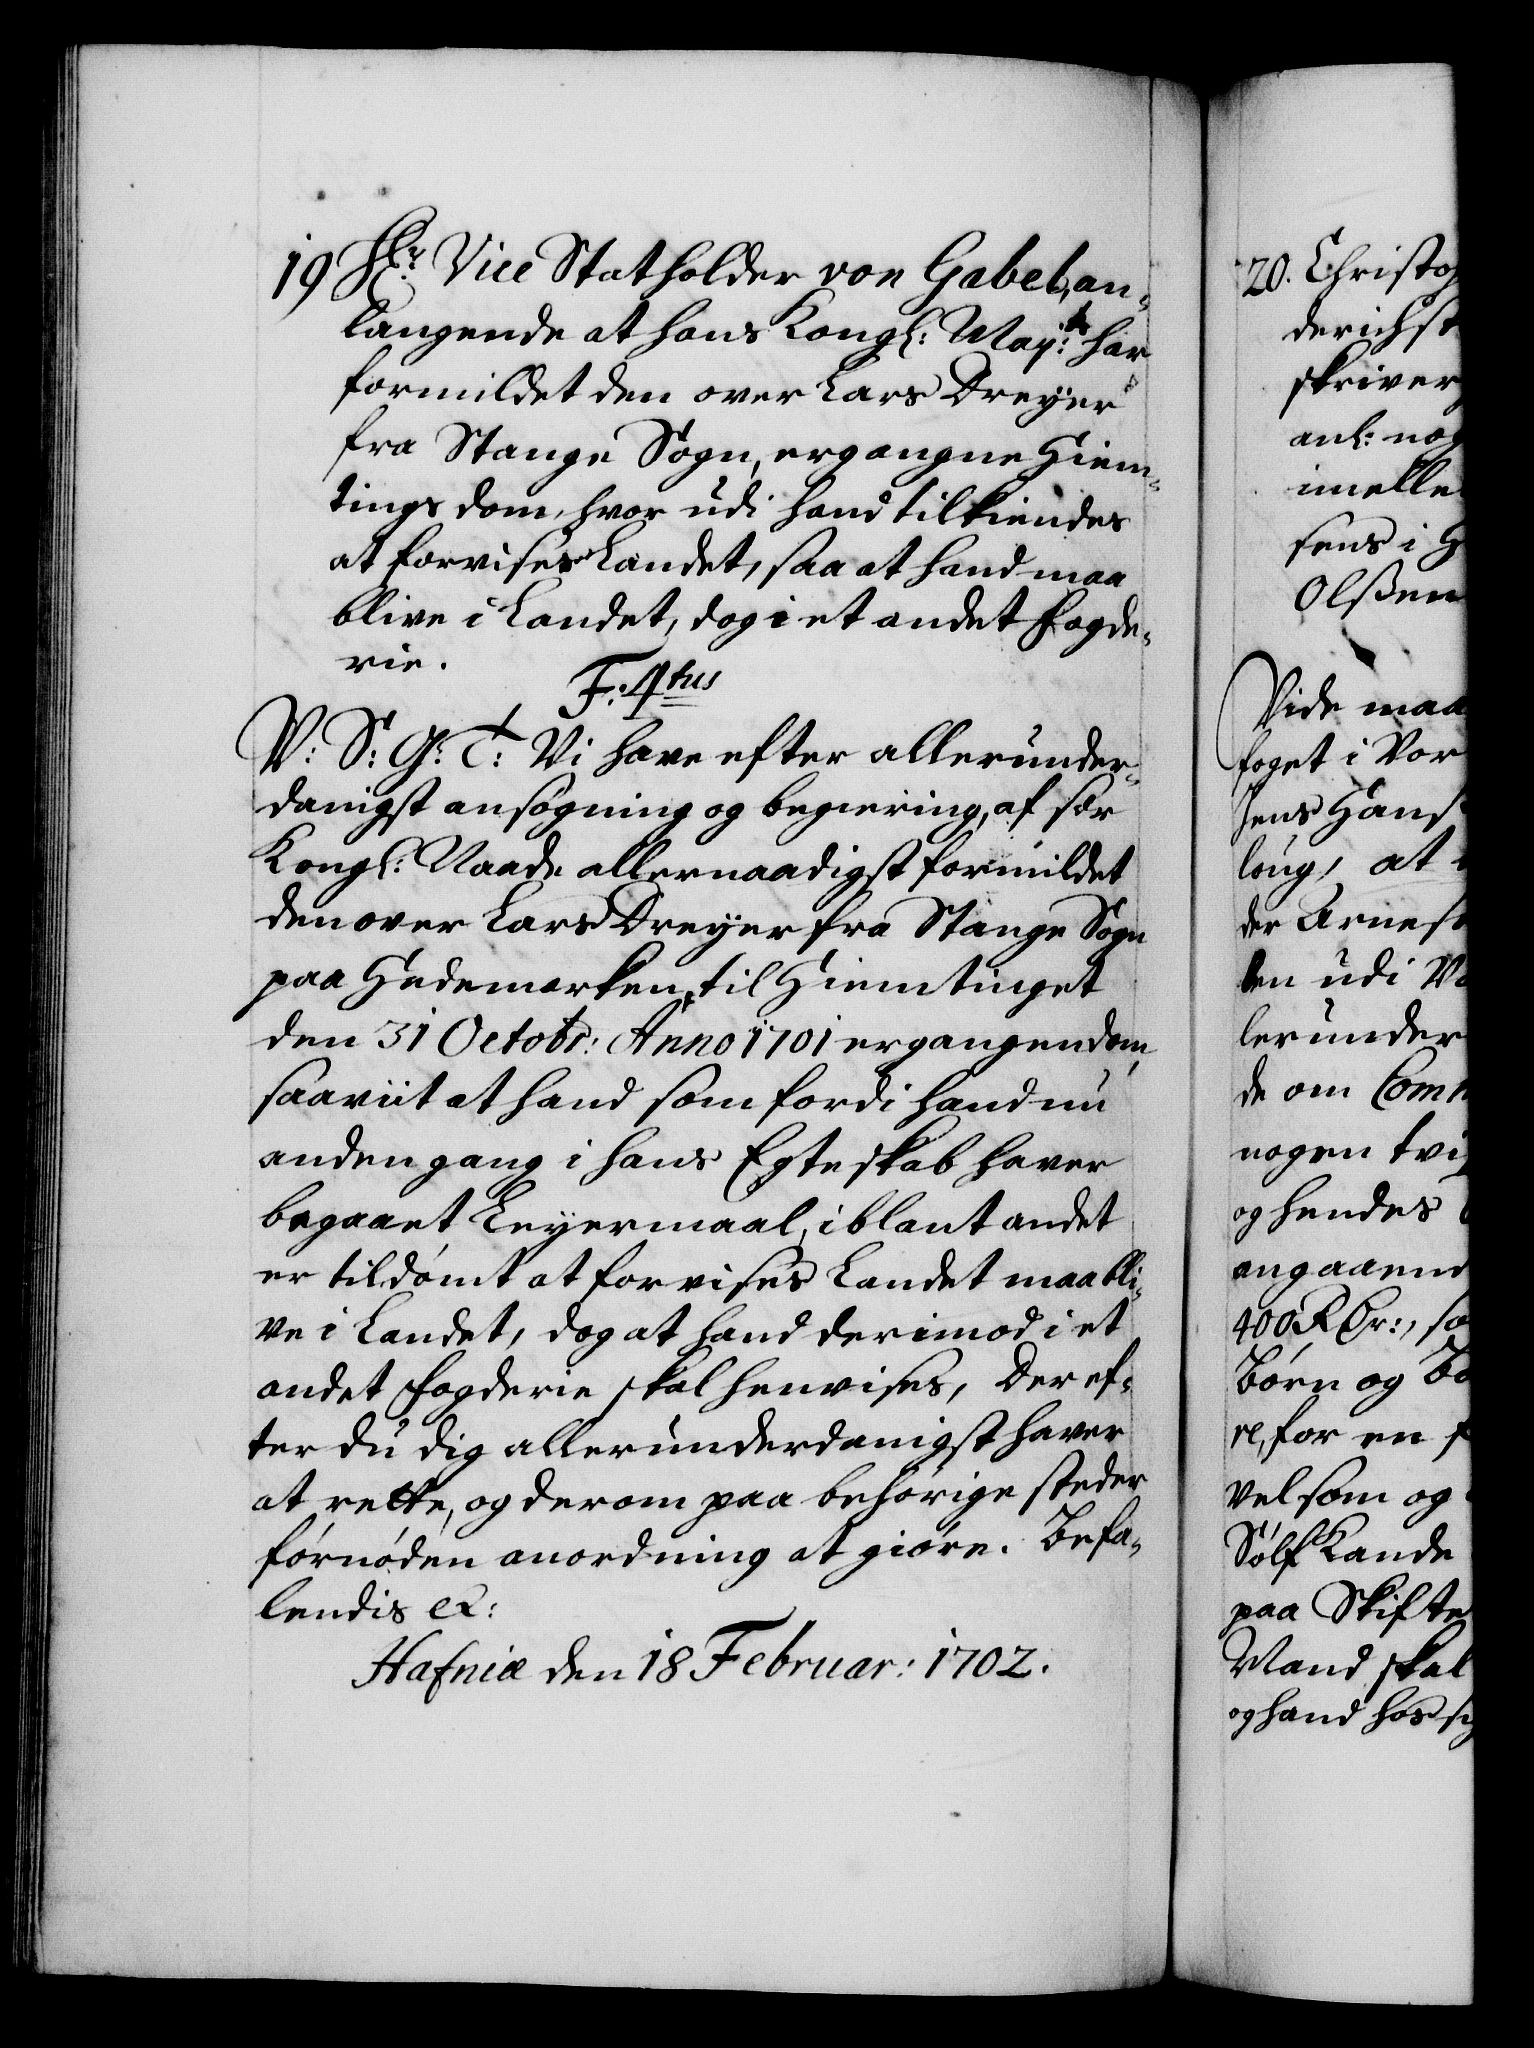 19 Hr: Vice Statholder von Gabel, an-
langende at hans Kongl: Maj:ts har
formildet den over Lars Dreyer
fra Stange Sogn, ergangne Hiem-
tings dom, hvor udi hand tilkiendes
at forvises Landet, saa at hand maa
blive i Landet, dog i et andet fogde-
rie.
F: 4tus
V: S: G: T: Vi have efter allerunder-
danigst ansøgning og begiering, af sær
Kongl: Naade allernaadigst formildet
den over Lars Dreyer fra Stange Sogn
paa Hedemarken, til Hiemtinget
den 31 Octobr: Anno 1701 ergangen dom,
saaviit at hand som fordi hand nu
anden gang i hans Egteskab haver
begaaet Leyermaal, iblant andet
er tildømt at forvises Landet maa bli-
ve i Landet, dog at hand derimod i et
andet fogderie skal henvises, Deref-
ter du dig allerunderdanigst haver
at rette, og derom paa behørige steder
førnøden anordning at giøre. Befa-
lendis etc:
Hafniæ den 18 Februar: 1702.
20. Christop
derichs
skriver
anl: nog
imelle
sens i H
Olssen
Vide maa
foget i Vor
Jens Hans
loug, at
der Arnes
ten udi V
lerunder
de om Com
nogen tvi
og hendes
angaaend
400 R Cr:, so
Børn og Bo
re, for en f
vel som og
Sølf Kande
paa Skifte
Mand skal
og hand hos sig